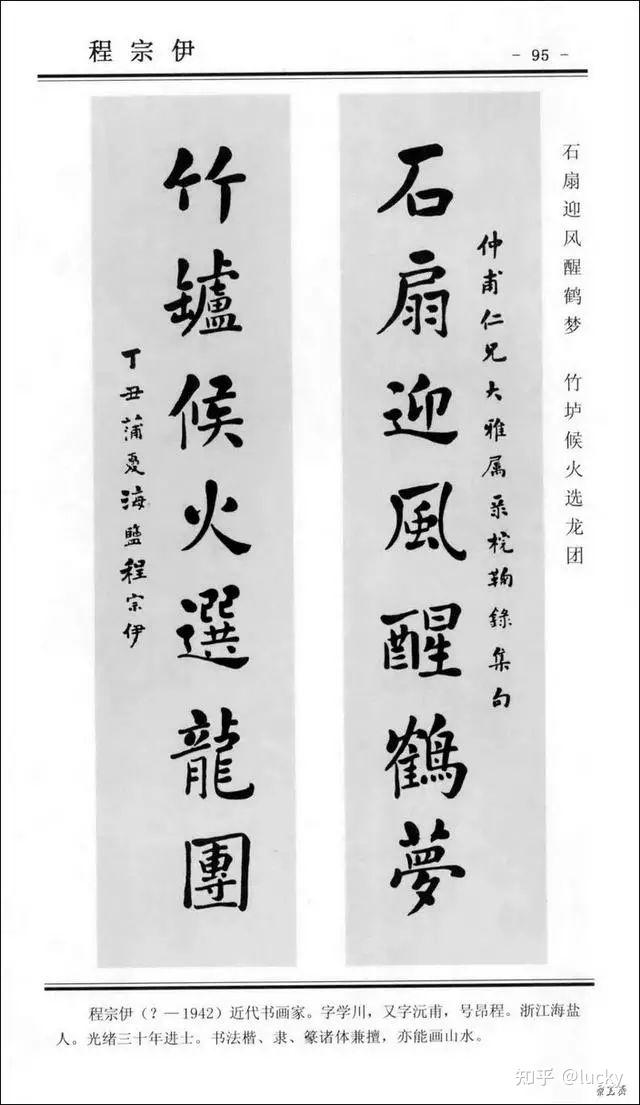 程宗伊
- 95 -
石扇迎风醒鹤梦 竹垆候火选龙团
仲甫仁兄大雅属
錄集句
石扇迎風醒鶴夢
竹鑪候火選龍團
丁丑蒲夏海鹽程宗伊
程宗伊(？—1942)近代书画家。字学川，又字沅甫，号昂程。浙江海盐
人。光绪三十年进士。书法楷、隶、篆诸体兼擅，亦能画山水。
知乎 @lucky